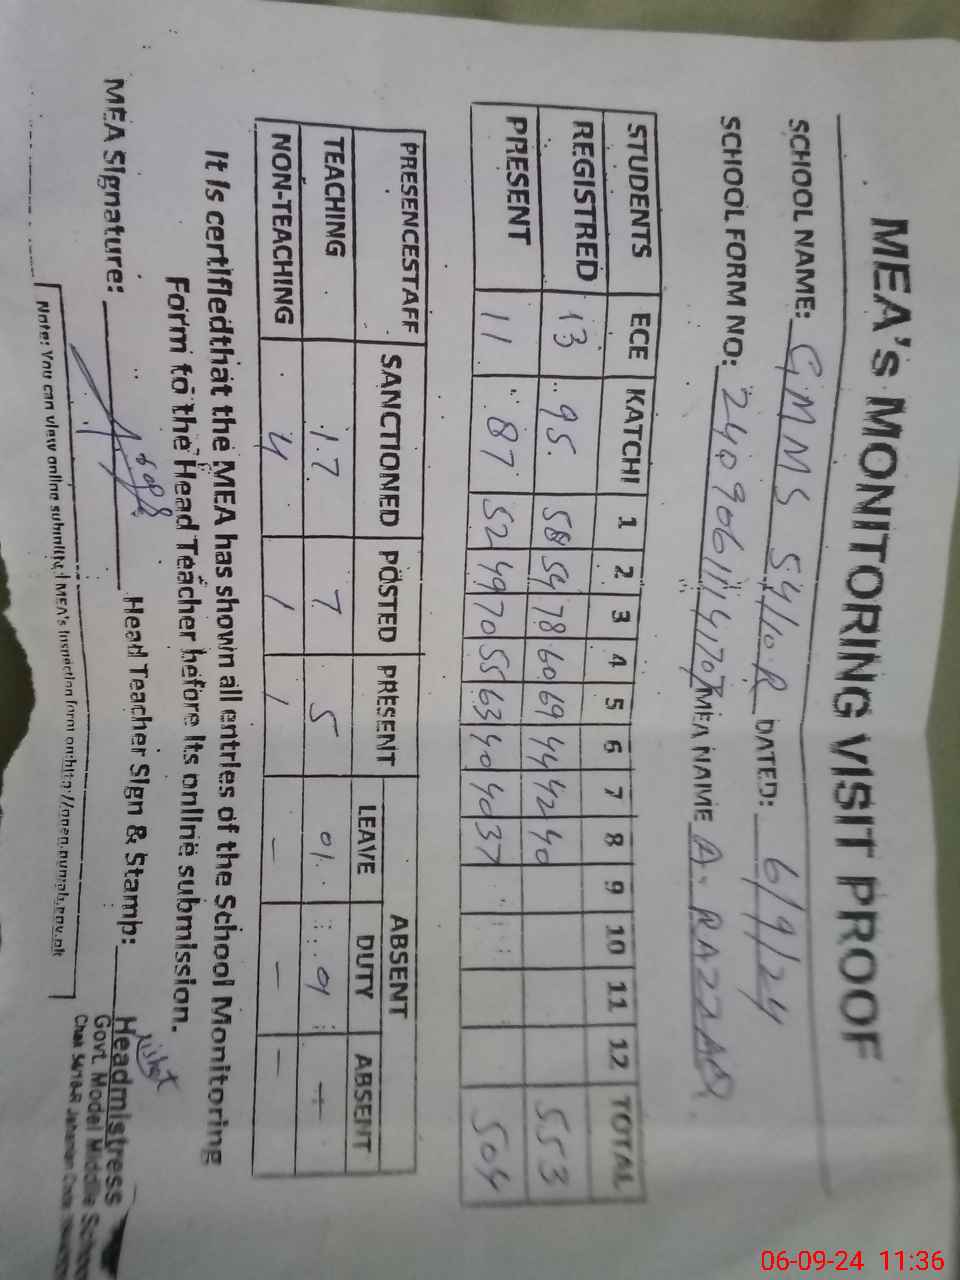 MEA's MONITORING VISIT PROOF
SCHOOL NAME: GMMS 54/10.R DATED: 6/9/24
SCHOOL FORM NO: MEA NAME A. RAZZAQ
STUDENTS ECE KATCHI 1 2 3 4 5 6 7 8 9 10 11 12 TOTAL
REGISTRED 13 95 58 54 78 60 69 44 42 40 553
PRESENT 11 87 52 49 70 55 63 40 40 37 504
PRESENCESTAFF SANCTIONED POSTED PRESENT ABSENT
LEAVE DUTY ABSENT
TEACHING 17 7 5 01 01 —
NON-TEACHING 4 1 1 — — —
It is certifiedthat the MEA has shown all entries of the School Monitoring
Form to the Head Teacher before its online submission.
MEA Signature: Head Teacher Sign & Stamp:
Headmistress
Govt. Model Middle School
Chak 54/10-R Jahanian Code
Note: You can view online submitted MEA's Inspection form on:http://open.punjab.gov.pk
06-09-24 11:36